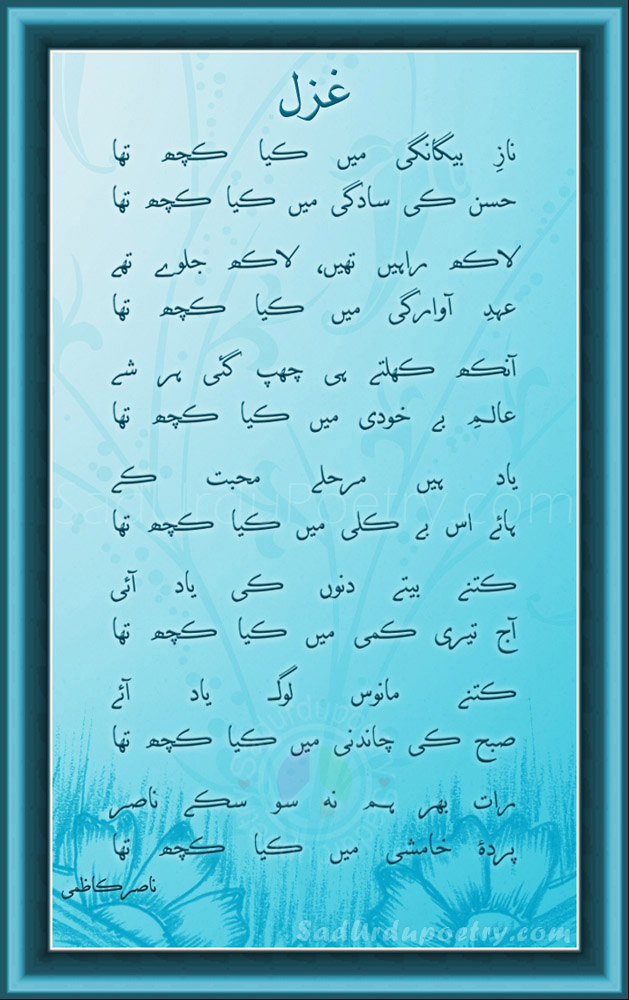 غزل
نازِ بیگانگی میں کیا کچھ تھا
حسن کی سادگی میں کیا کچھ تھا
لاکھ راہیں تھیں، لاکھ جلوے تھے
عہدِ آوارگی میں کیا کچھ تھا
آنکھ کھلتے ہی چھپ گئی ہر شے
عالمِ بے خودی میں کیا کچھ تھا
یاد ہیں مرحلے محبت کے
ہائے اس بے کلی میں کیا کچھ تھا
کتنے بیتے دنوں کی یاد آئی
آج تیری کمی میں کیا کچھ تھا
کتنے مانوس لوگ یاد آئے
صبح کی چاندنی میں کیا کچھ تھا
رات بھر ہم نہ سو سکے ناصر
پردۂ خامشی میں کیا کچھ تھا
ناصر کاظمی
SadUrdupoetry.com
SadUrduPoetry.com